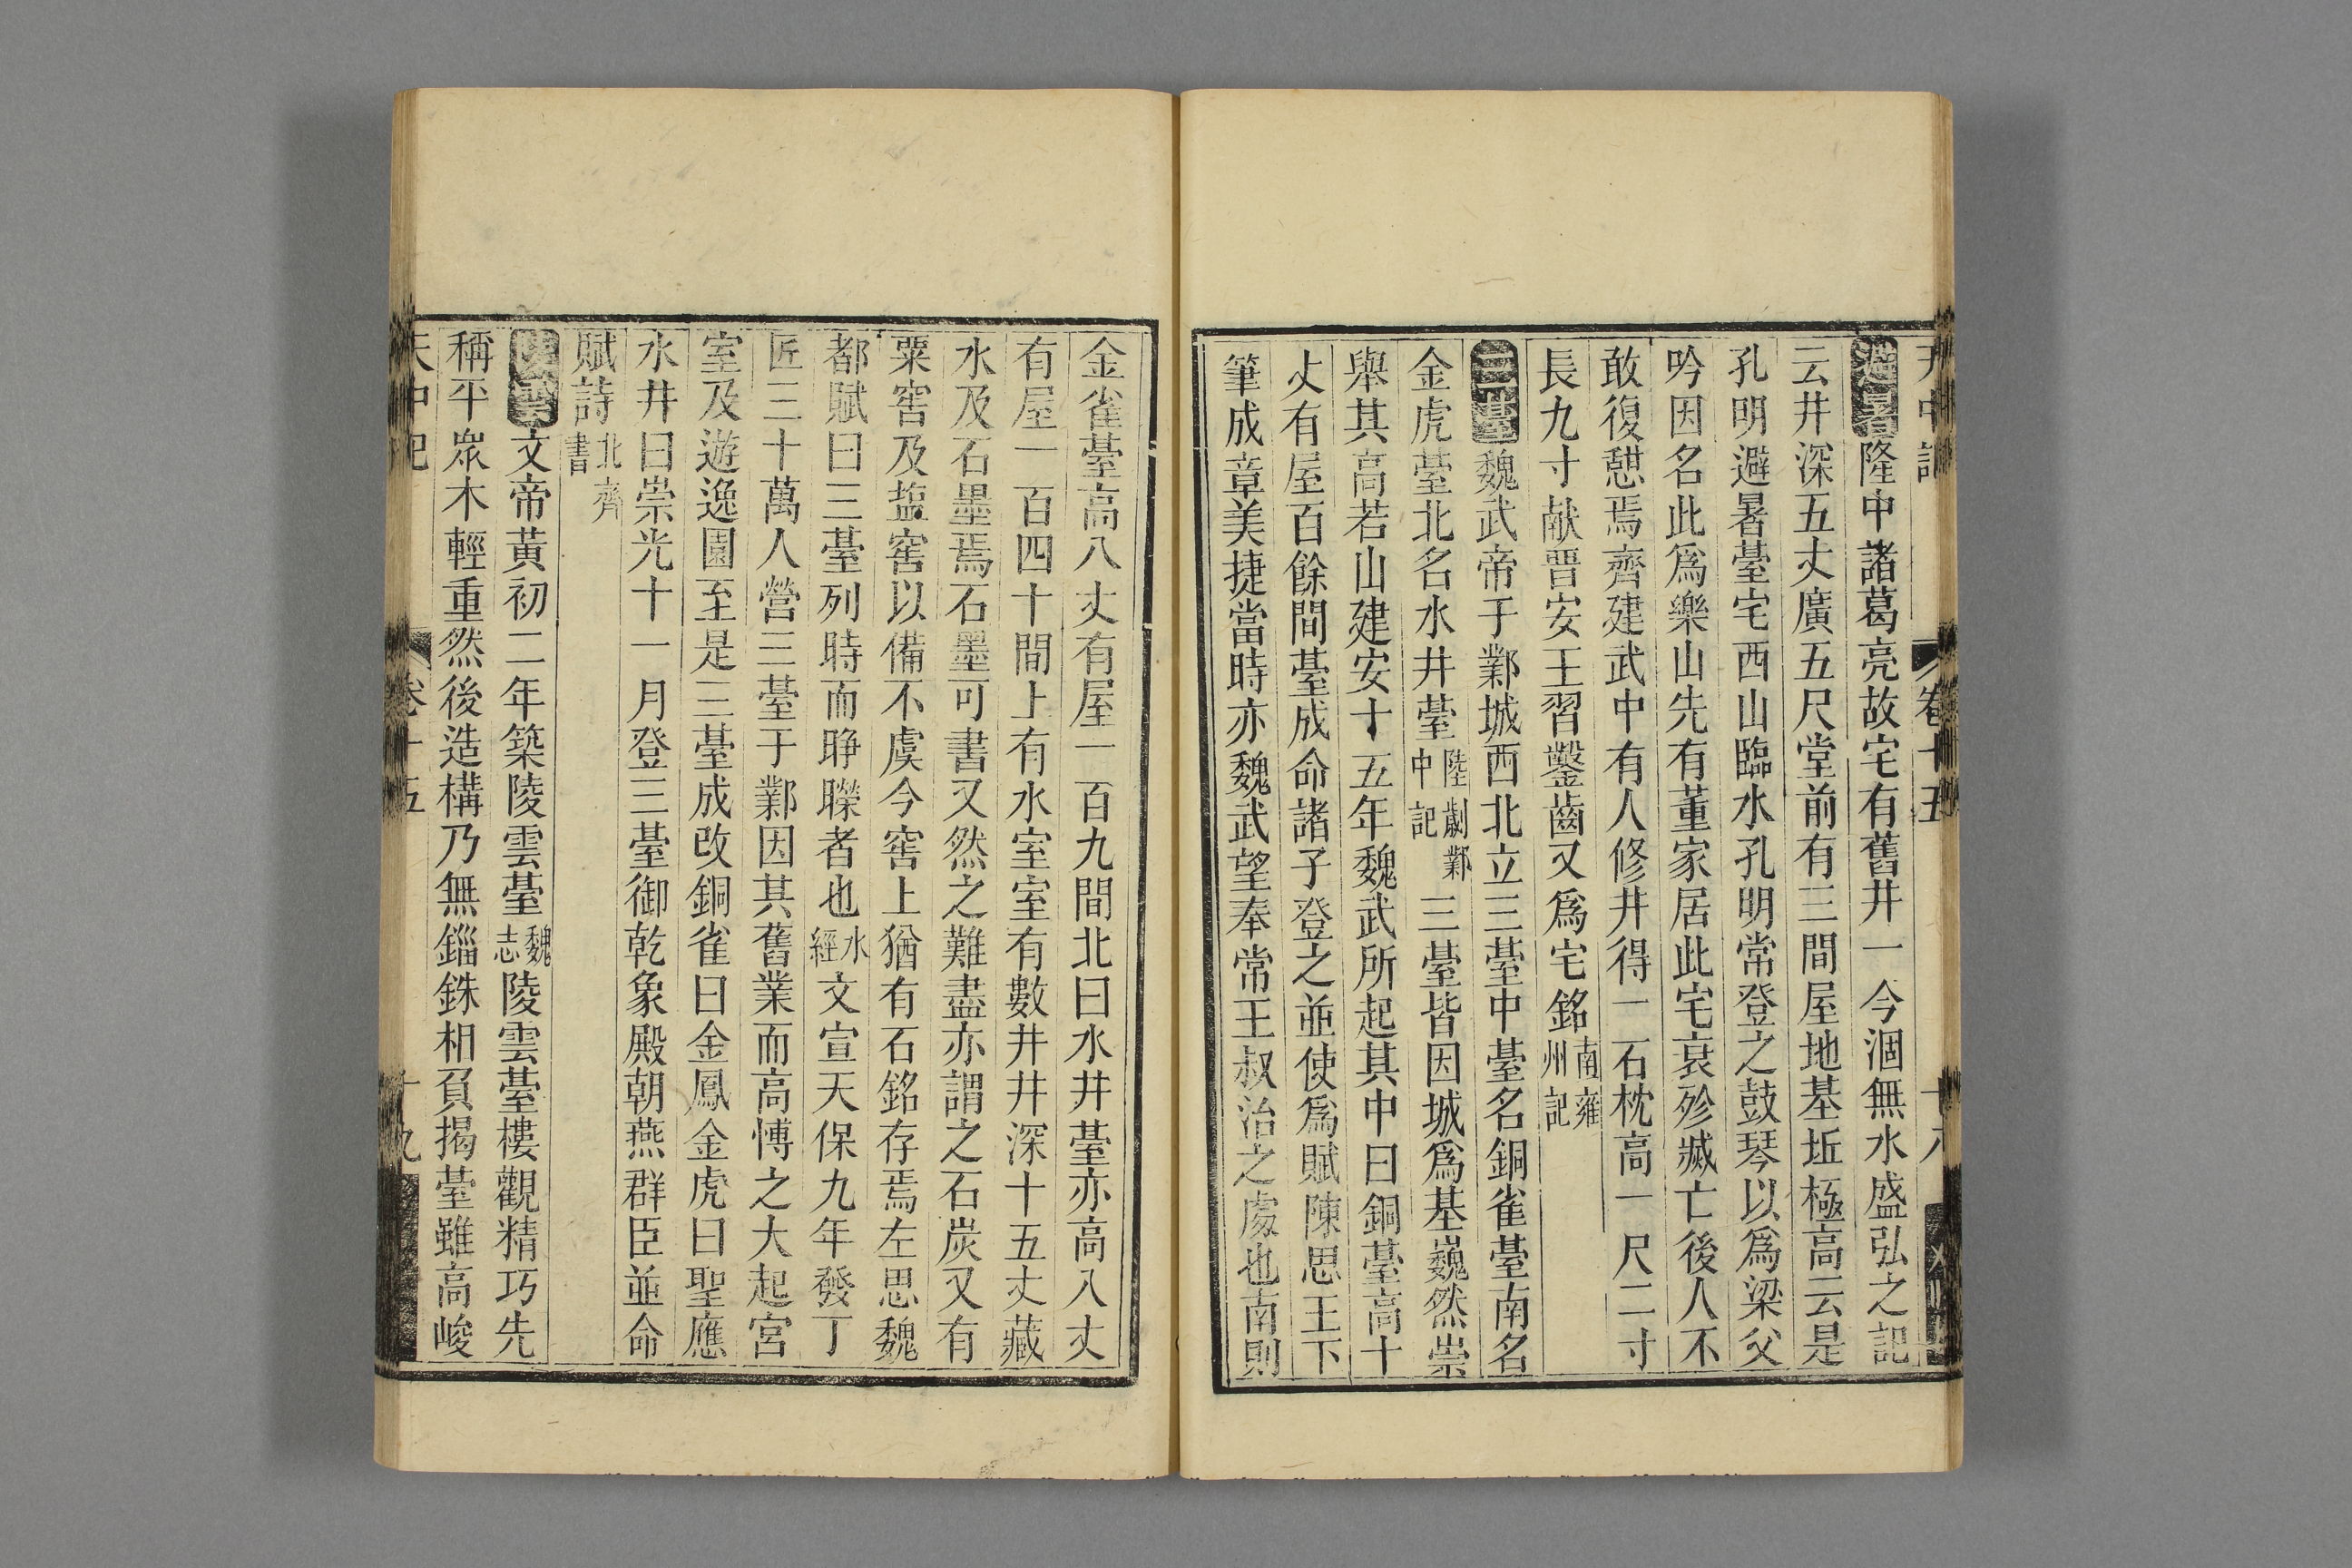 天中記 卷十五 十八
避暑隆中諸葛亮故宅有舊井一今涸無水盛弘之記
云井深五丈廣五尺堂前有三間屋地基坵極高云是
孔明避暑臺宅西山臨水孔明常登之鼓琴以爲梁父
吟因名此爲樂山先有董家居此宅衰殄滅亡後人不
敢復憇焉齊建武中有人修井得一石枕高一尺二寸
長九寸献晋安王習鑿齒又爲宅銘南雍州記
三臺魏武帝于鄴城西北立三臺中臺名銅雀臺南名
金虎臺北名水井臺陸劌鄴中記三臺皆因城爲基巍然崇
舉其高若山建安十五年魏武所起其中曰銅臺高十
丈有屋百餘間臺成命諸子登之並使爲賦陳思王下
筆成章美捷當時亦魏武望奉常王叔治之處也南則
金雀臺高八丈有屋一百九間北曰水井臺亦高八丈
有屋一百四十間上有水室室有數井井深十五丈藏
水及石墨焉石墨可書又然之難盡亦謂之石炭又有
粟窖及塩窖以備不虞今窖上猶有石銘存焉左思魏
都賦曰三臺列時而睁𥌒者也水經文宣天保九年發丁
匠三十萬人營三臺于鄴因其舊業而高愽之大起宮
室及遊逸園至是三臺成改銅雀曰金鳳金虎曰聖應
水井曰崇光十一月登三臺御乾象殿朝燕群臣並命
賦詩北齊書
陵雲文帝黃初二年築陵雲臺魏志陵雲臺樓觀精巧先
稱平眾木輕重然後造構乃無錙銖相負揭臺雖高峻
天中記 卷十五 十九